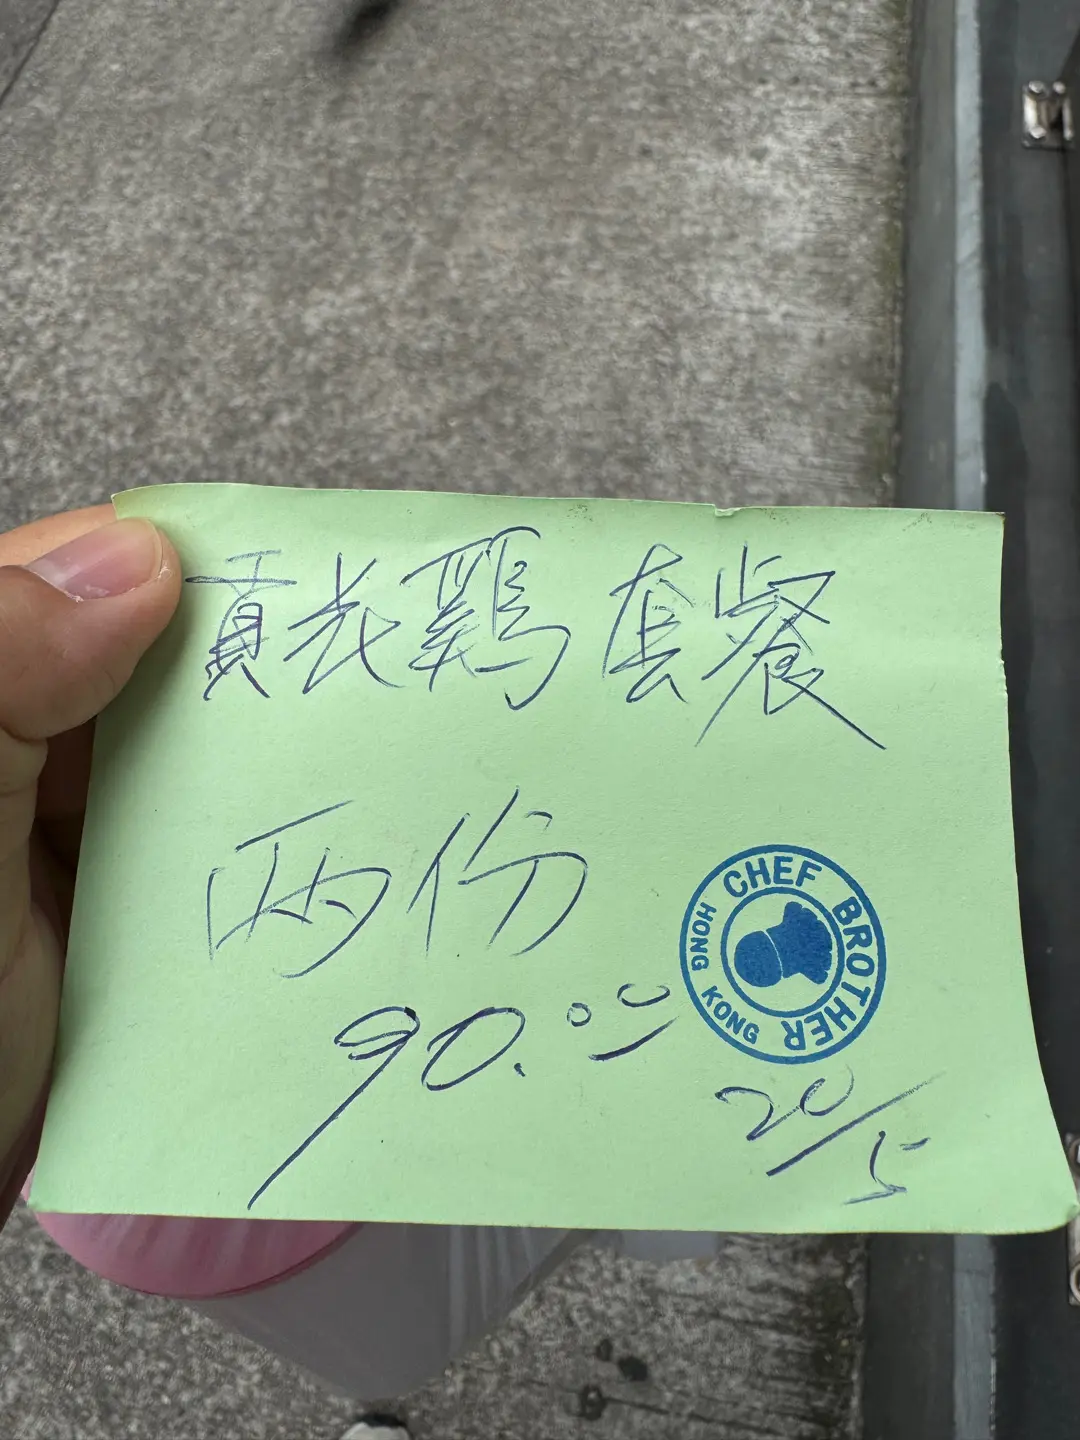 貢衣鷄套餐
两份
90.00
CHEF BROTHER
HONG KONG
20/5